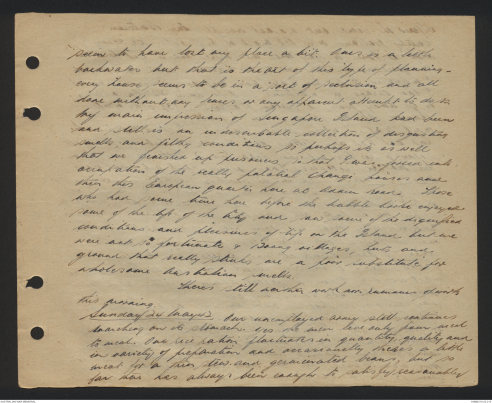 seem to have lost any place a bit. Ours is a little
backwater but that is the art of this type of planning -
every house seems to be in a sort of seclusion and all
done without any fences or any apparent attempt to do so.
My main impression of Singapore Island had been
and still is an indescribable collection of disgusting
smells and filthy conditions so perhaps it is as well
that we finished up prisoners in that
occupation of the really palatial Changi
this European quarter here at Adam Road. Those
who had some time here before the bubble broke enjoyed
some of the life of the City and saw some of the dignified
conditions and pleasures of life on the Island but we
were not so fortunate & Boong villages, huts and
ground that really stinks are a poor substitute for
wholesome Australian smells.
There's still another
this morning.
Sunday 24 May 42. Our unemployed army still continues
marching on its stomach. Yes, the men live only from meal
to meal. Our rice ration fluctuates in quantity, quality and
in variety of preparation and occasionally there is a little
meat for a pie, tea and germinated beans, but so
far there has always been enough to satisfy reasonably